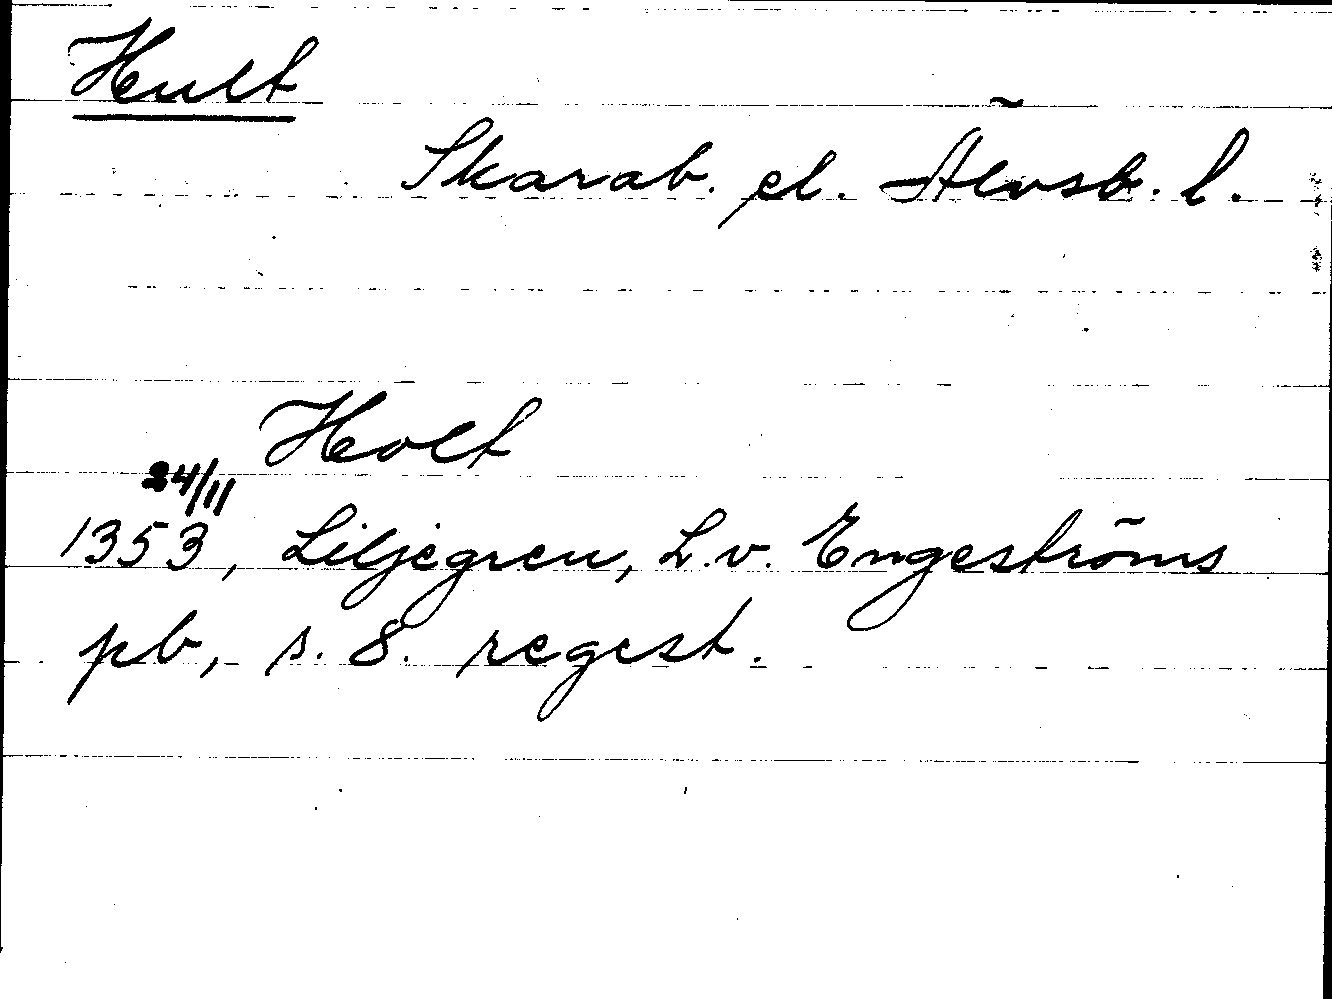 Hult
Skarab. el. Älvsb. l.
Holt
24/11
1353, Liljegren, L.v. Engeströms
pb, s. 8. regest.